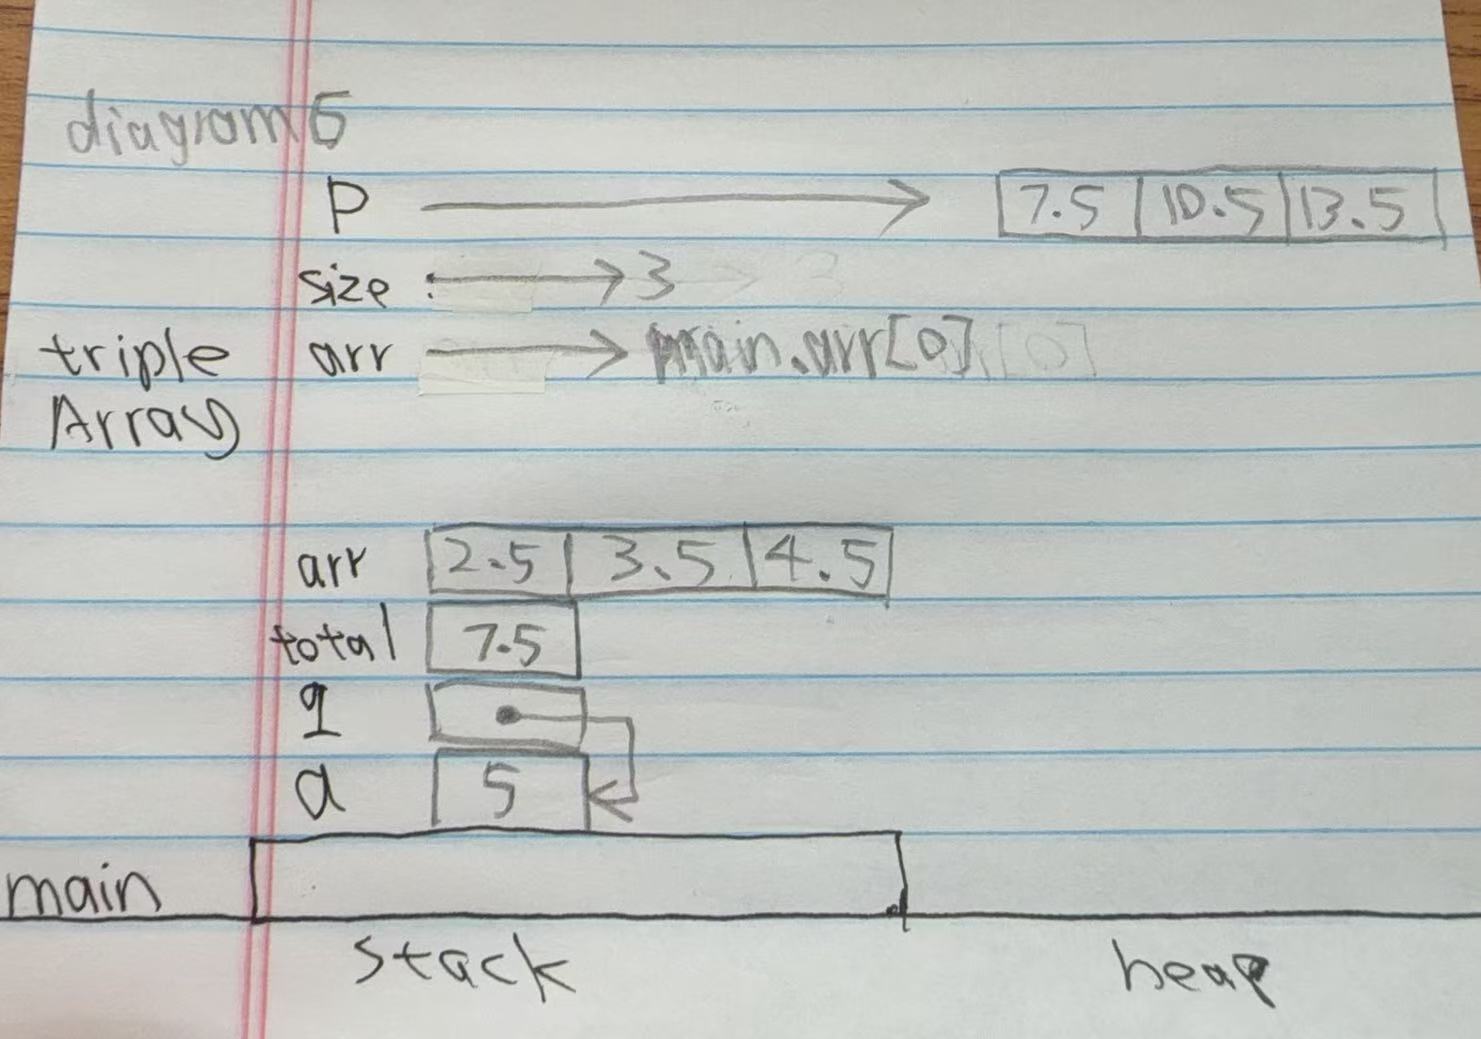 diagram 5
p 7.5 10.5 13.5
size 3
triple arr main.arr[0]
Array
arr 2.5 3.5 4.5
total 7.5
q
a 5
main
stack heap